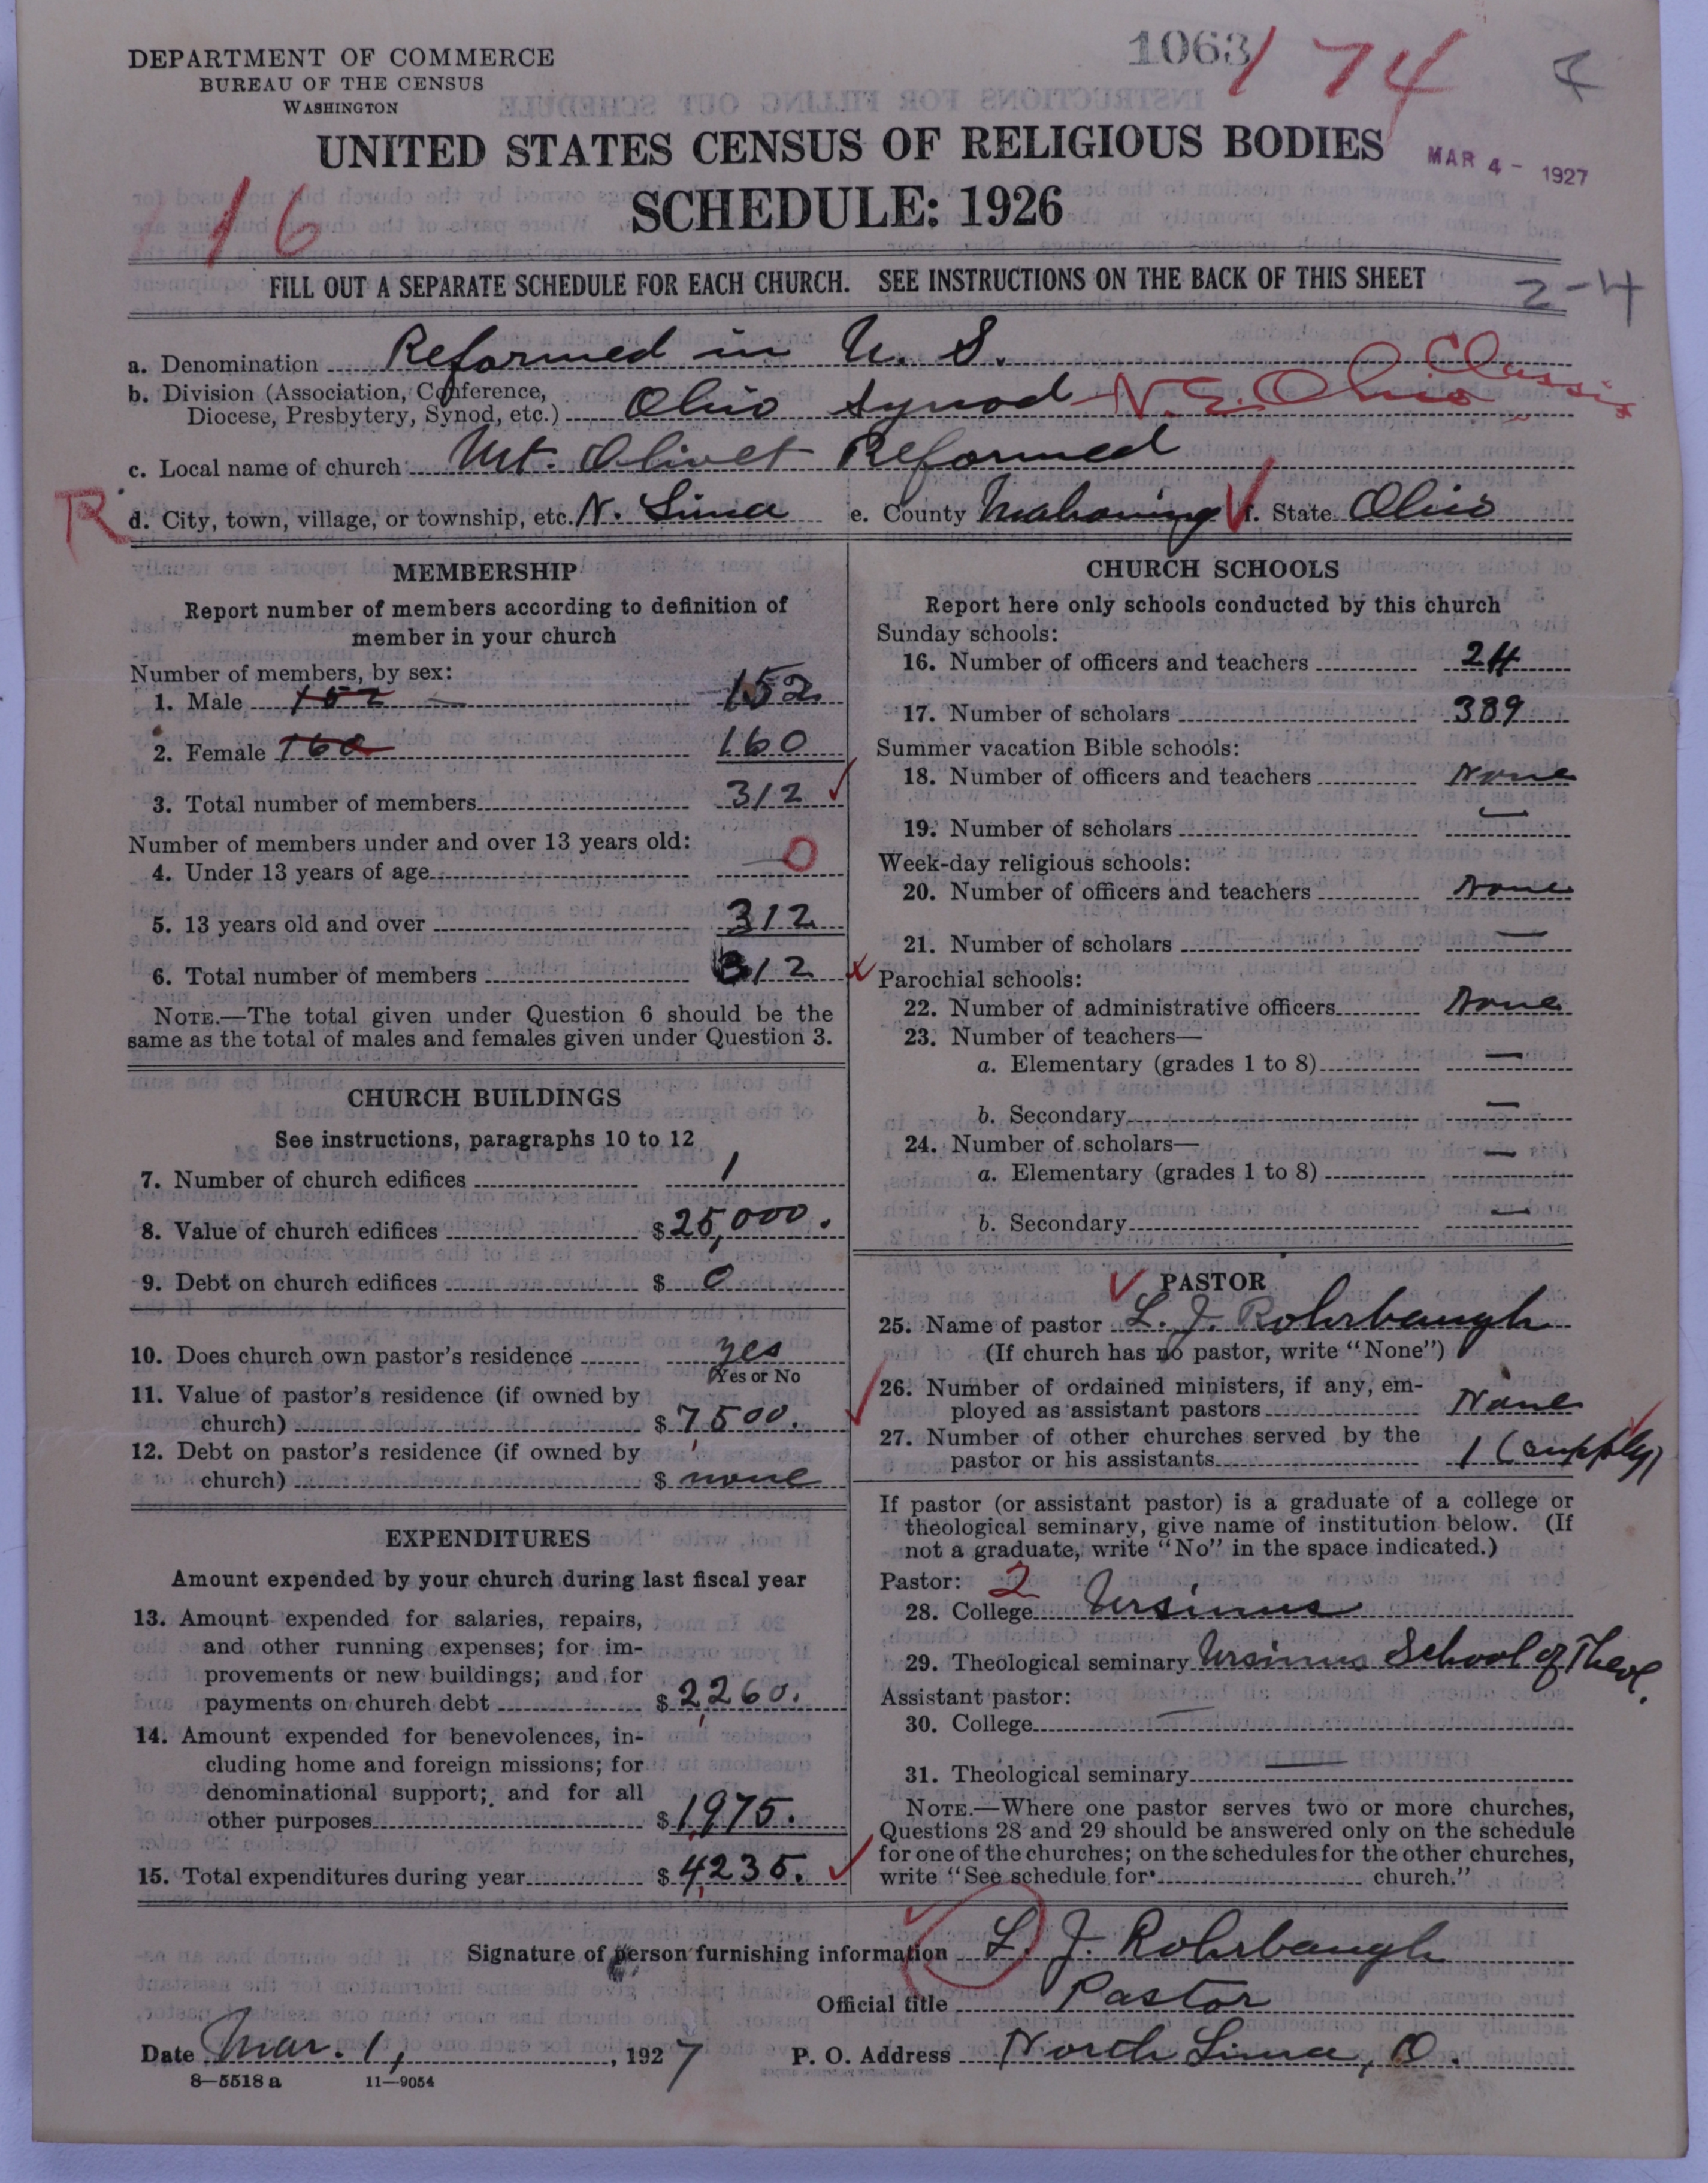 DEPARTMENT OF COMMERCE
BUREAU OF THE CENSUS
WASHINGTON
1063
174
UNITED STATES CENSUS OF RELIGIOUS BODIES
MAR 4 - 1927
SCHEDULE: 1926
16
FILL OUT A SEPARATE SCHEDULE FOR EACH CHURCH. SEE INSTRUCTIONS ON THE BACK OF THIS SHEET
2-4
a. Denomination Reformed in U. S.
b. Division (Association, Conference,
Diocese, Presbytery, Synod, etc.) Ohio Synod - N. E. Ohio Classis
c. Local name of church Mt. Olivet Reformed
R
d. City, town, village, or township, etc. N. Lima e. County Mahoning f. State Ohio
MEMBERSHIP
Report number of members according to definition of
member in your church
Number of members, by sex:
1. Male 152 152
2. Female 160 160
3. Total number of members 312
Number of members under and over 13 years old:
4. Under 13 years of age 0
5. 13 years old and over 312
6. Total number of members 312
NOTE.—The total given under Question 6 should be the
same as the total of males and females given under Question 3.
CHURCH BUILDINGS
See instructions, paragraphs 10 to 12
7. Number of church edifices 1
8. Value of church edifices $ 25,000.
9. Debt on church edifices $ 0
10. Does church own pastor's residence yes
Yes or No
11. Value of pastor's residence (if owned by
church) $ 7,500.
12. Debt on pastor's residence (if owned by
church) $ none
EXPENDITURES
Amount expended by your church during last fiscal year
13. Amount expended for salaries, repairs,
and other running expenses; for im-
provements or new buildings; and for
payments on church debt $ 2,260.
14. Amount expended for benevolences, in-
cluding home and foreign missions; for
denominational support; and for all
other purposes $ 1,975.
15. Total expenditures during year $ 4,235.
CHURCH SCHOOLS
Report here only schools conducted by this church
Sunday schools:
16. Number of officers and teachers 24
17. Number of scholars 389
Summer vacation Bible schools:
18. Number of officers and teachers None
19. Number of scholars —
Week-day religious schools:
20. Number of officers and teachers None
21. Number of scholars —
Parochial schools:
22. Number of administrative officers None
23. Number of teachers—
a. Elementary (grades 1 to 8) —
b. Secondary —
24. Number of scholars—
a. Elementary (grades 1 to 8) —
b. Secondary —
PASTOR
25. Name of pastor L. J. Rohrbaugh
(If church has no pastor, write "None")
26. Number of ordained ministers, if any, em-
ployed as assistant pastors None
27. Number of other churches served by the
pastor or his assistants 1 (supply)
If pastor (or assistant pastor) is a graduate of a college or
theological seminary, give name of institution below. (If
not a graduate, write "No" in the space indicated.)
Pastor: 2
28. College Ursinus
29. Theological seminary Ursinus School of Theol.
Assistant pastor:
30. College —
31. Theological seminary —
NOTE.—Where one pastor serves two or more churches,
Questions 28 and 29 should be answered only on the schedule
for one of the churches; on the schedules for the other churches,
write "See schedule for church."
Signature of person furnishing information L. J. Rohrbaugh
Official title Pastor
Date Mar. 1, 1927 P. O. Address North Lima, O.
8—5518 a 11—9054